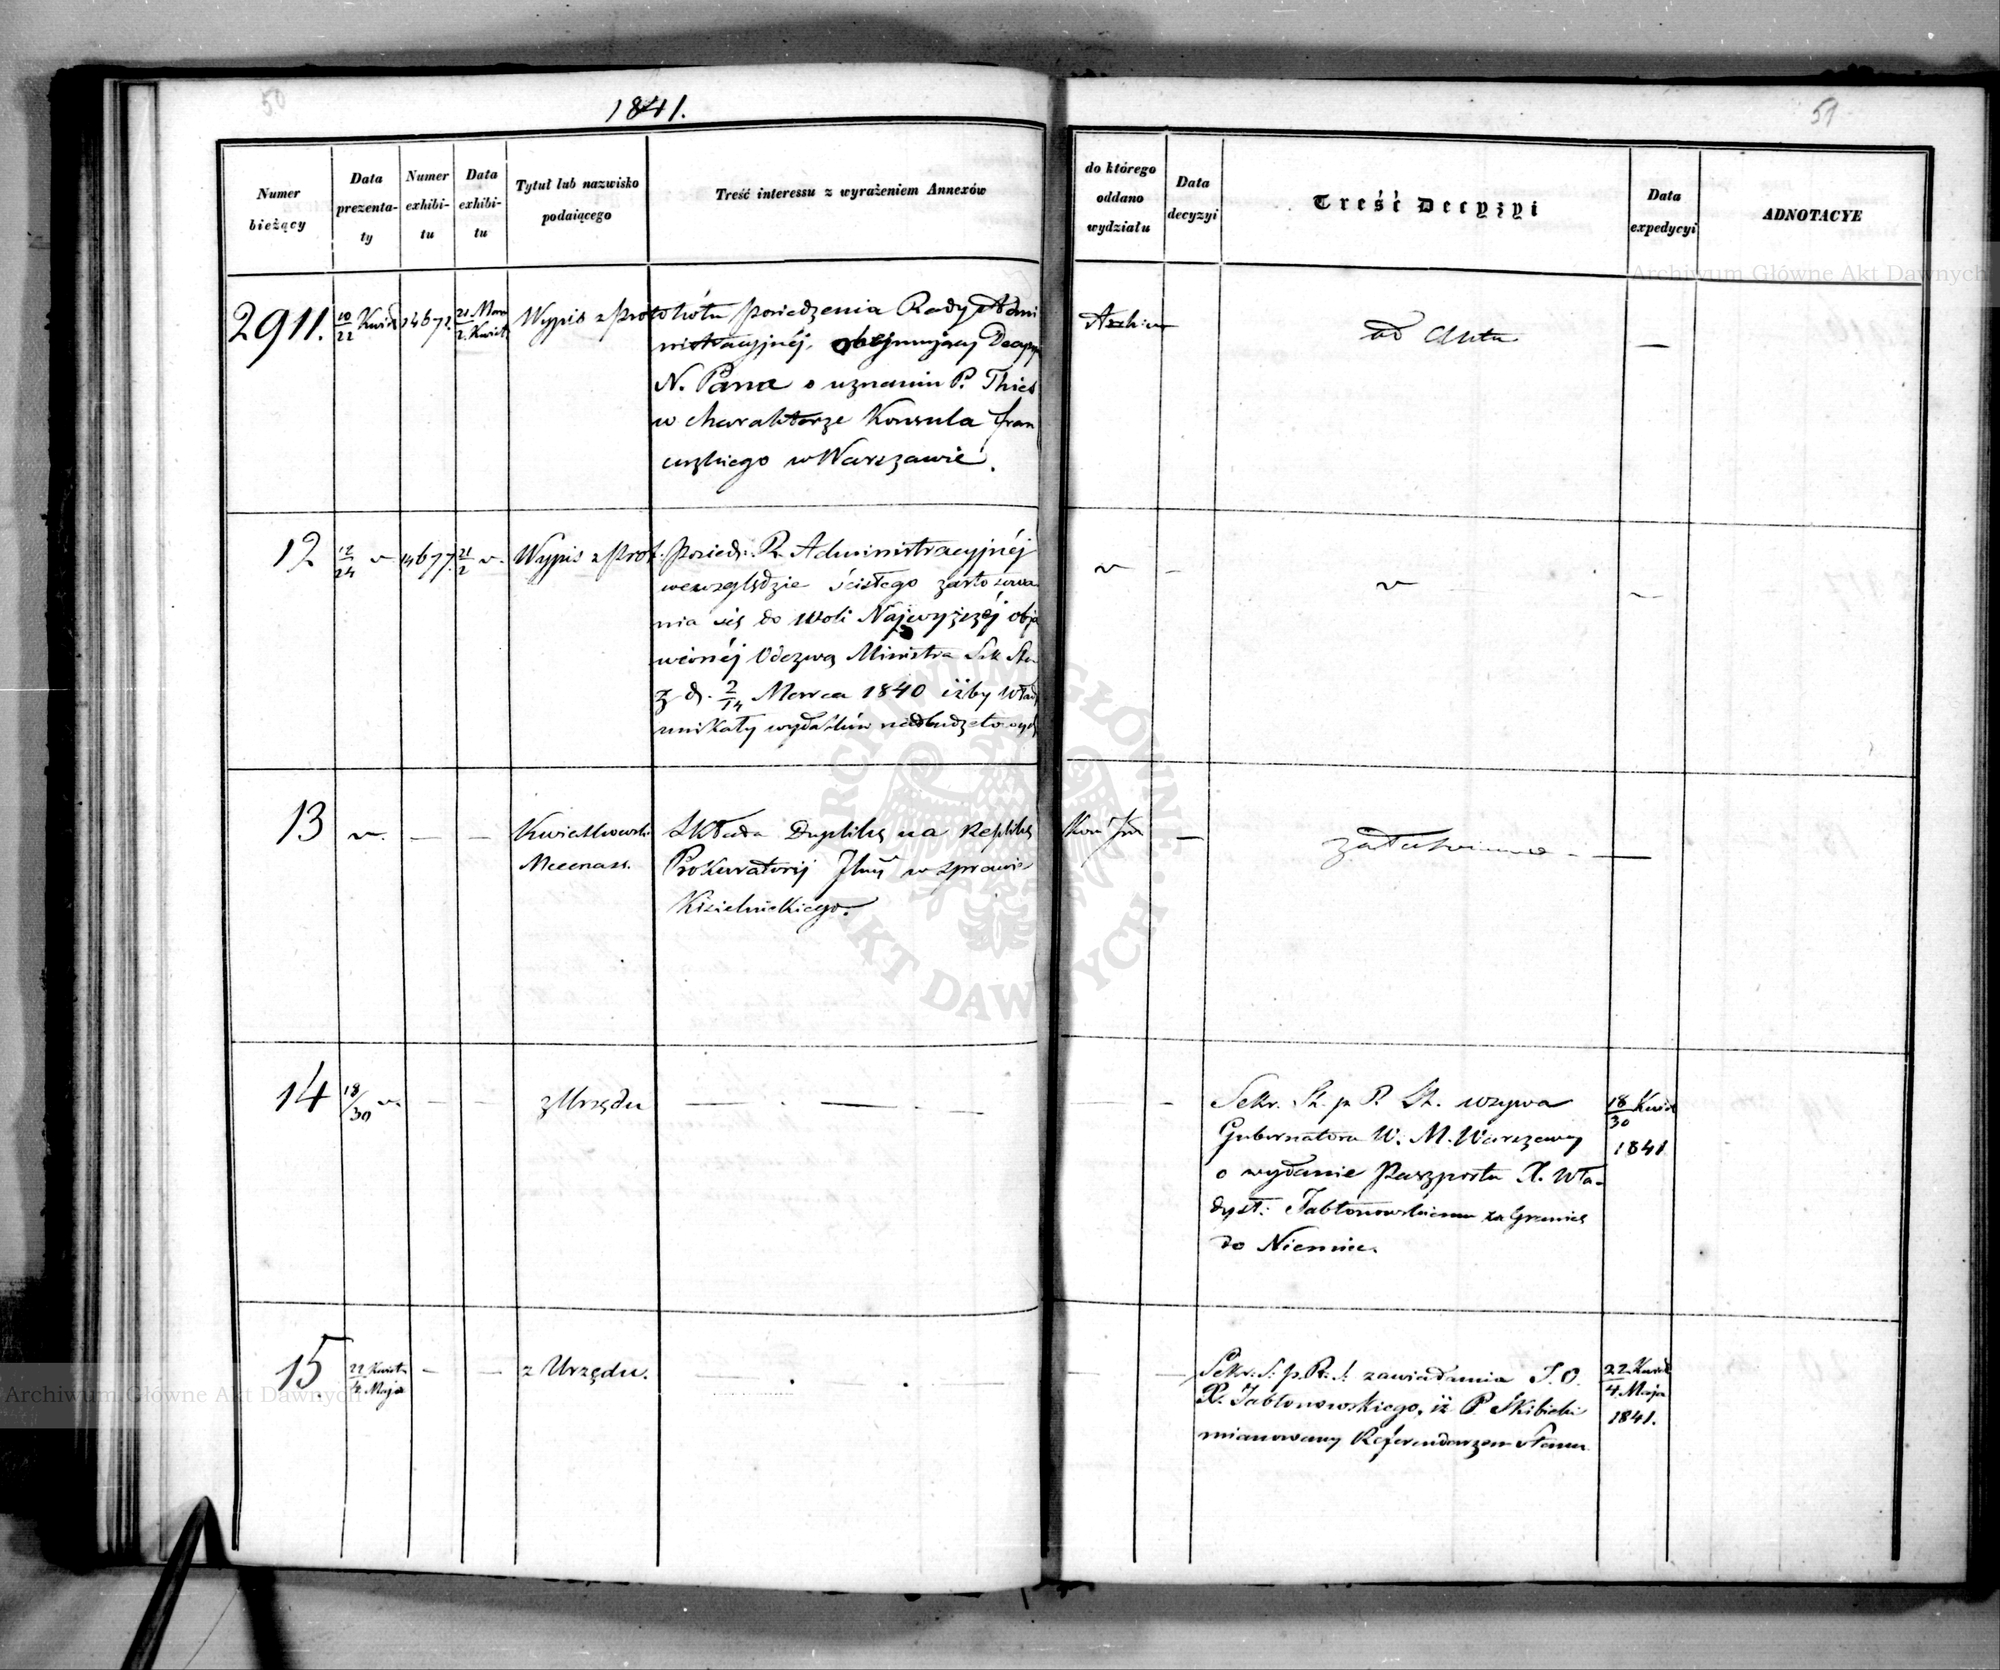 50
1841.
51
Numer bieżący
Data prezentaty
Numer exhibitu
Data exhibitu
Tytuł lub nazwisko podaiącego
Treść interessu z wyrażeniem Annexów
do którego oddano wydziału
Data decyzyi
Treść Decyzyi
Data expedycyi
ADNOTACYE
2911.
10/22 Kwiet
14672.
21 Mar
2. Kwiet
Wypis z protokółu posiedzenia Rady Admi
nistracyjnéj, obejmujący Decyzyę
N. Pana o uznaniu P. Thies
w charakterze Konsula fran
cuzkiego w Warszawie.
Archiw
ad Acta
—
12
12/24 "
14677.
21/2 "
Wypis z prot. posiedz. R. Administracyjnéj
wewzględzie ścisłego zastosowa
nia się do Woli Najwyższéj obja
wionéj Odezwą Ministra Sek Stu
z d. 2/14 Marca 1840 iżby Wład
unikały wydatków nadbudżetowych
"
—
"
—
13
"
—
—
Kwiatkowski
Mecenas.
Składa Duplikę na Replikę
Prokuratorij w sprawie
Kisielnickiego.
—
załatwiono —
14
18/30 "
—
—
z Urzędu
— . — . —
—
—
Sekr. St. p. R. St. wzywa
Gubernatora W. M. Warszawy
o wydanie Paszportu X. Wła-
dysł: Jabłonowskiemu za Granicę
do Niemiec.
18/30 Kwiet
1841
15
22 Kwiet
4. Maja
—
—
z Urzędu.
— . — . —
—
—
Sekr. S. p. R. S. zawiadamia J. O.
X. Jabłonowskiego, iż P. Skibicki
mianowany Referendarzem Stanu
22 Kwiet
4. Maja
1841.
Archiwum Główne Akt Dawnych
Archiwum Główne Akt Dawnych
ARCHIWUM GŁÓWNE AKT DAWNYCH